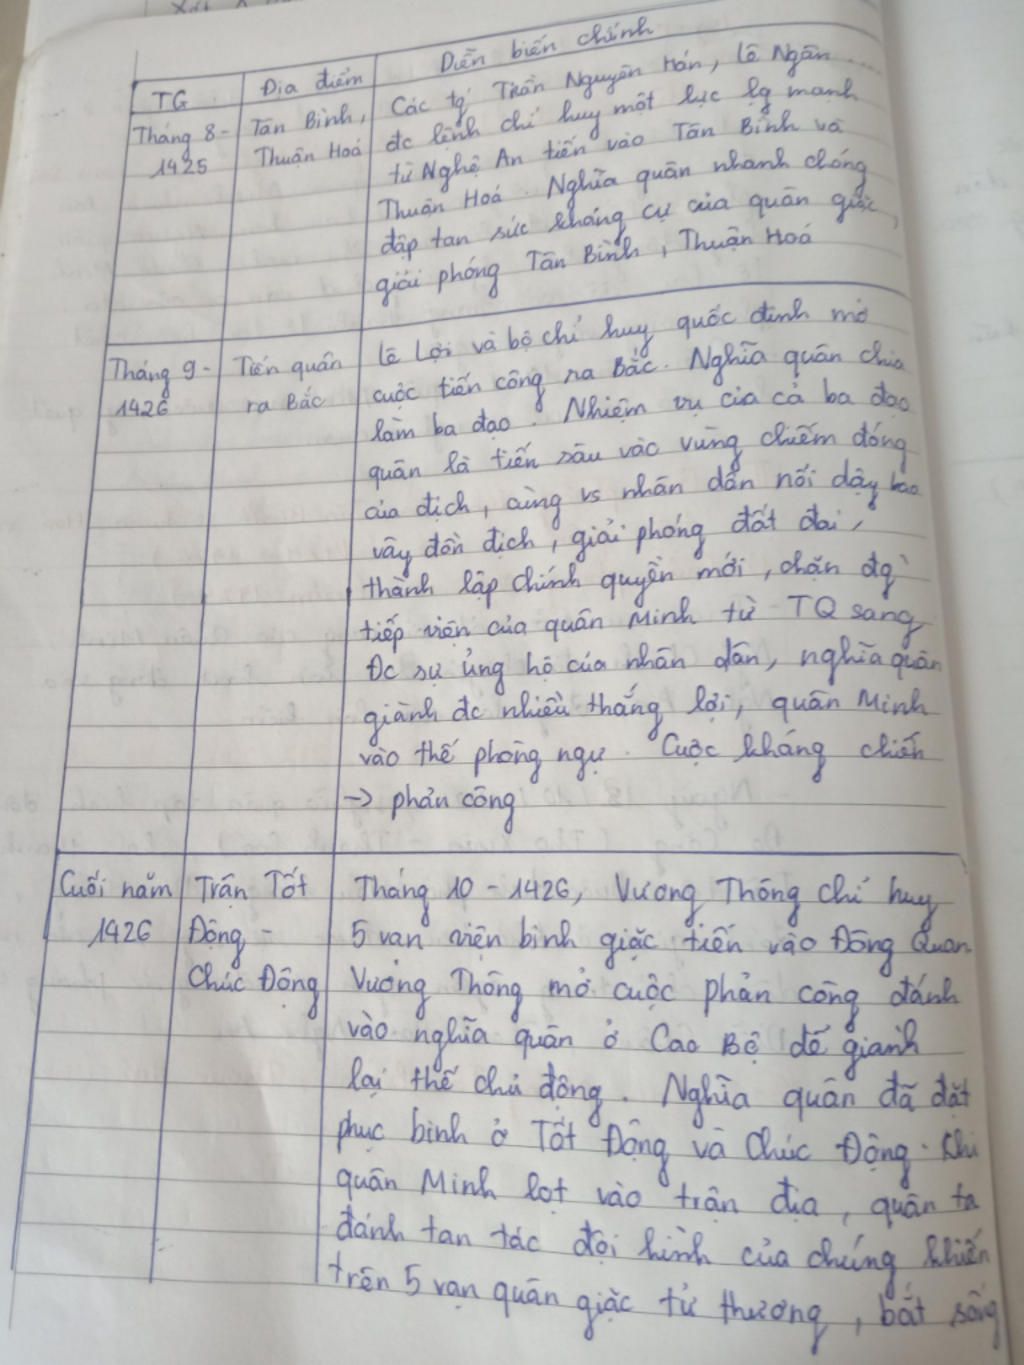 TG Địa điểm Diễn biến chính
Tháng 8 - Tân Bình, Các tg Trần Nguyên Hán, Lê Ngân
1425 Thuận Hoá đc lệnh chỉ huy một lực lg mạnh
từ Nghệ An tiến vào Tân Bình và
Thuận Hoá. Nghĩa quân nhanh chóng
đập tan sức kháng cự của quân giặc,
giải phóng Tân Bình, Thuận Hoá
Tháng 9 - Tiến quân Lê Lợi và bộ chỉ huy quốc định mở
1426 ra Bắc cuộc tiến công ra Bắc. Nghĩa quân chia
làm ba đạo. Nhiệm vụ của cả ba đạo
quân là tiến sâu vào vùng chiếm đóng
của địch, cùng vs nhân dân nổi dậy bao
vây đồn địch, giải phóng đất đai,
thành lập chính quyền mới, chặn đg
tiếp viện của quân Minh từ TQ sang
Đc sự ủng hộ của nhân dân, nghĩa quân
giành đc nhiều thắng lợi, quân Minh
vào thế phòng ngự. Cuộc kháng chiến
-> phản công
Cuối năm Trận Tốt Tháng 10 - 1426, Vương Thông chỉ huy
1426 Động - 5 vạn viện binh giặc tiến vào Đông Quan
Chúc Động Vương Thông mở cuộc phản công đánh
vào nghĩa quân ở Cao Bộ để giành
lại thế chủ động. Nghĩa quân đã đặt
phục binh ở Tốt Động và Chúc Động. Khi
quân Minh lọt vào trận địa, quân ta
đánh tan tác đội hình của chúng khiến
trên 5 vạn quân giặc tử thương, bắt sống